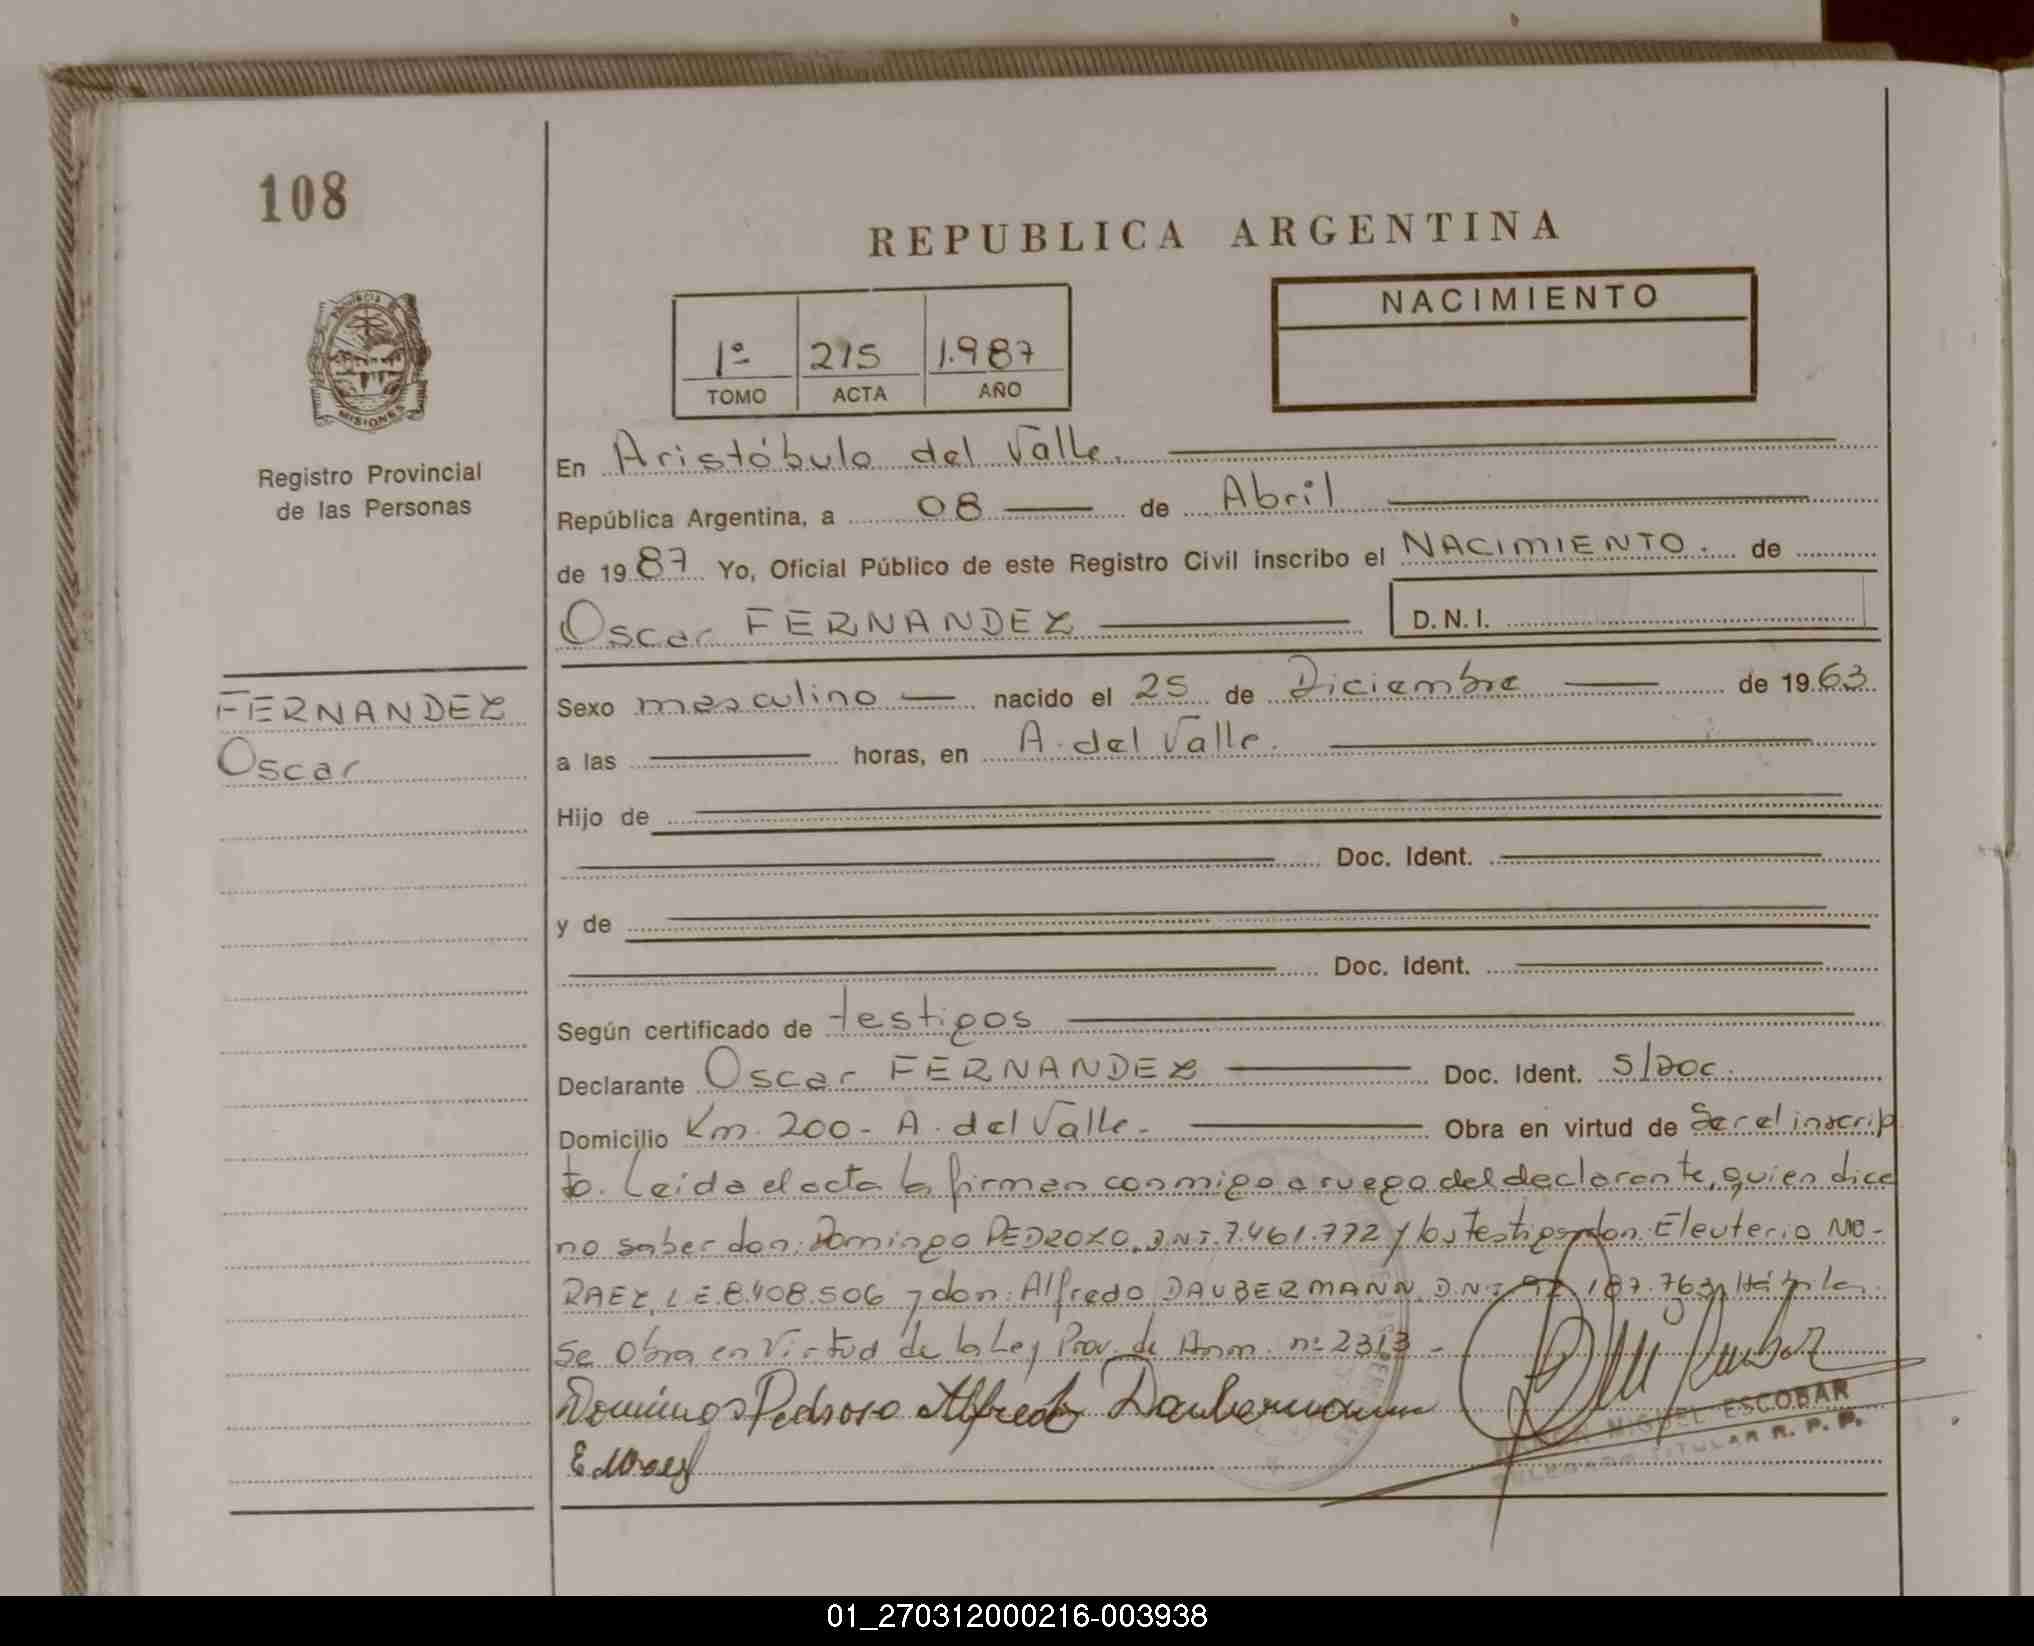 108
REPUBLICA ARGENTINA
NACIMIENTO
1º 215 1.987
TOMO ACTA AÑO
MISIONES
Registro Provincial
de las Personas
En Aristóbulo del Valle.
República Argentina, a 08 de Abril
de 1987 Yo, Oficial Público de este Registro Civil inscribo el NACIMIENTO. de
Oscar FERNANDEZ D. N. I.
FERNANDEZ
Oscar
Sexo masculino nacido el 25 de Diciembre de 1963
a las horas, en A. del Valle.
Hijo de
Doc. Ident.
y de
Doc. Ident.
Según certificado de testigos
Declarante Oscar FERNANDEZ Doc. Ident. S/Doc.
Domicilio Km. 200 - A. del Valle. Obra en virtud de Ser el inscrip
to. Leida el acta la firman conmigo a ruego del declarante, quien dice
no saber don: Domingo PEDROZO, D.N.I. 7.461.772 y los testigos don: Eleuterio MO-
RAEZ, L.E. 8.408.506 y don: Alfredo DAUBERMANN D.N.I. 187.763, Hábiles.
Se Obra en Virtud de la Ley Prov. de Amn. nº 2313 -
Domingo Pedroso Alfredo Daubermann
E. Moraez
MIGUEL ESCOBAR
DELEGADO TITULAR R. P. P.
01_270312000216-003938